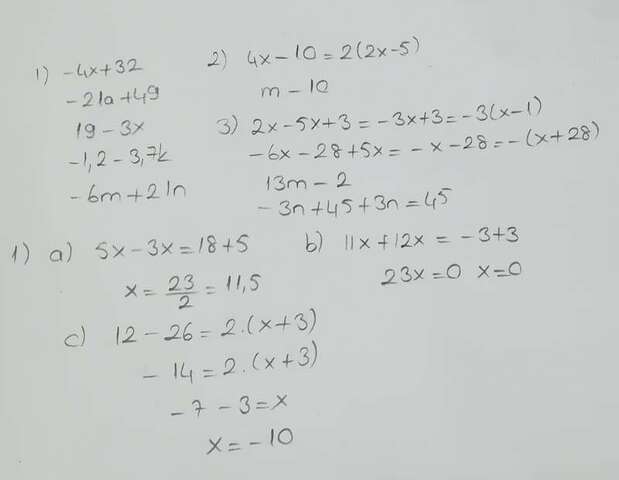 1) -4x+32
-21a+49
19-3x
-1,2-3,7k
-6m+21n
2) 4x-10=2(2x-5)
m-10
3) 2x-5x+3=-3x+3=-3(x-1)
-6x-28+5x=-x-28=-(x+28)
13m-2
-3n+45+3n=45
1) a) 5x-3x=18+5
x=23/2=11,5
b) 11x+12x=-3+3
23x=0 x=0
c) 12-26=2.(x+3)
-14=2.(x+3)
-7-3=x
x=-10